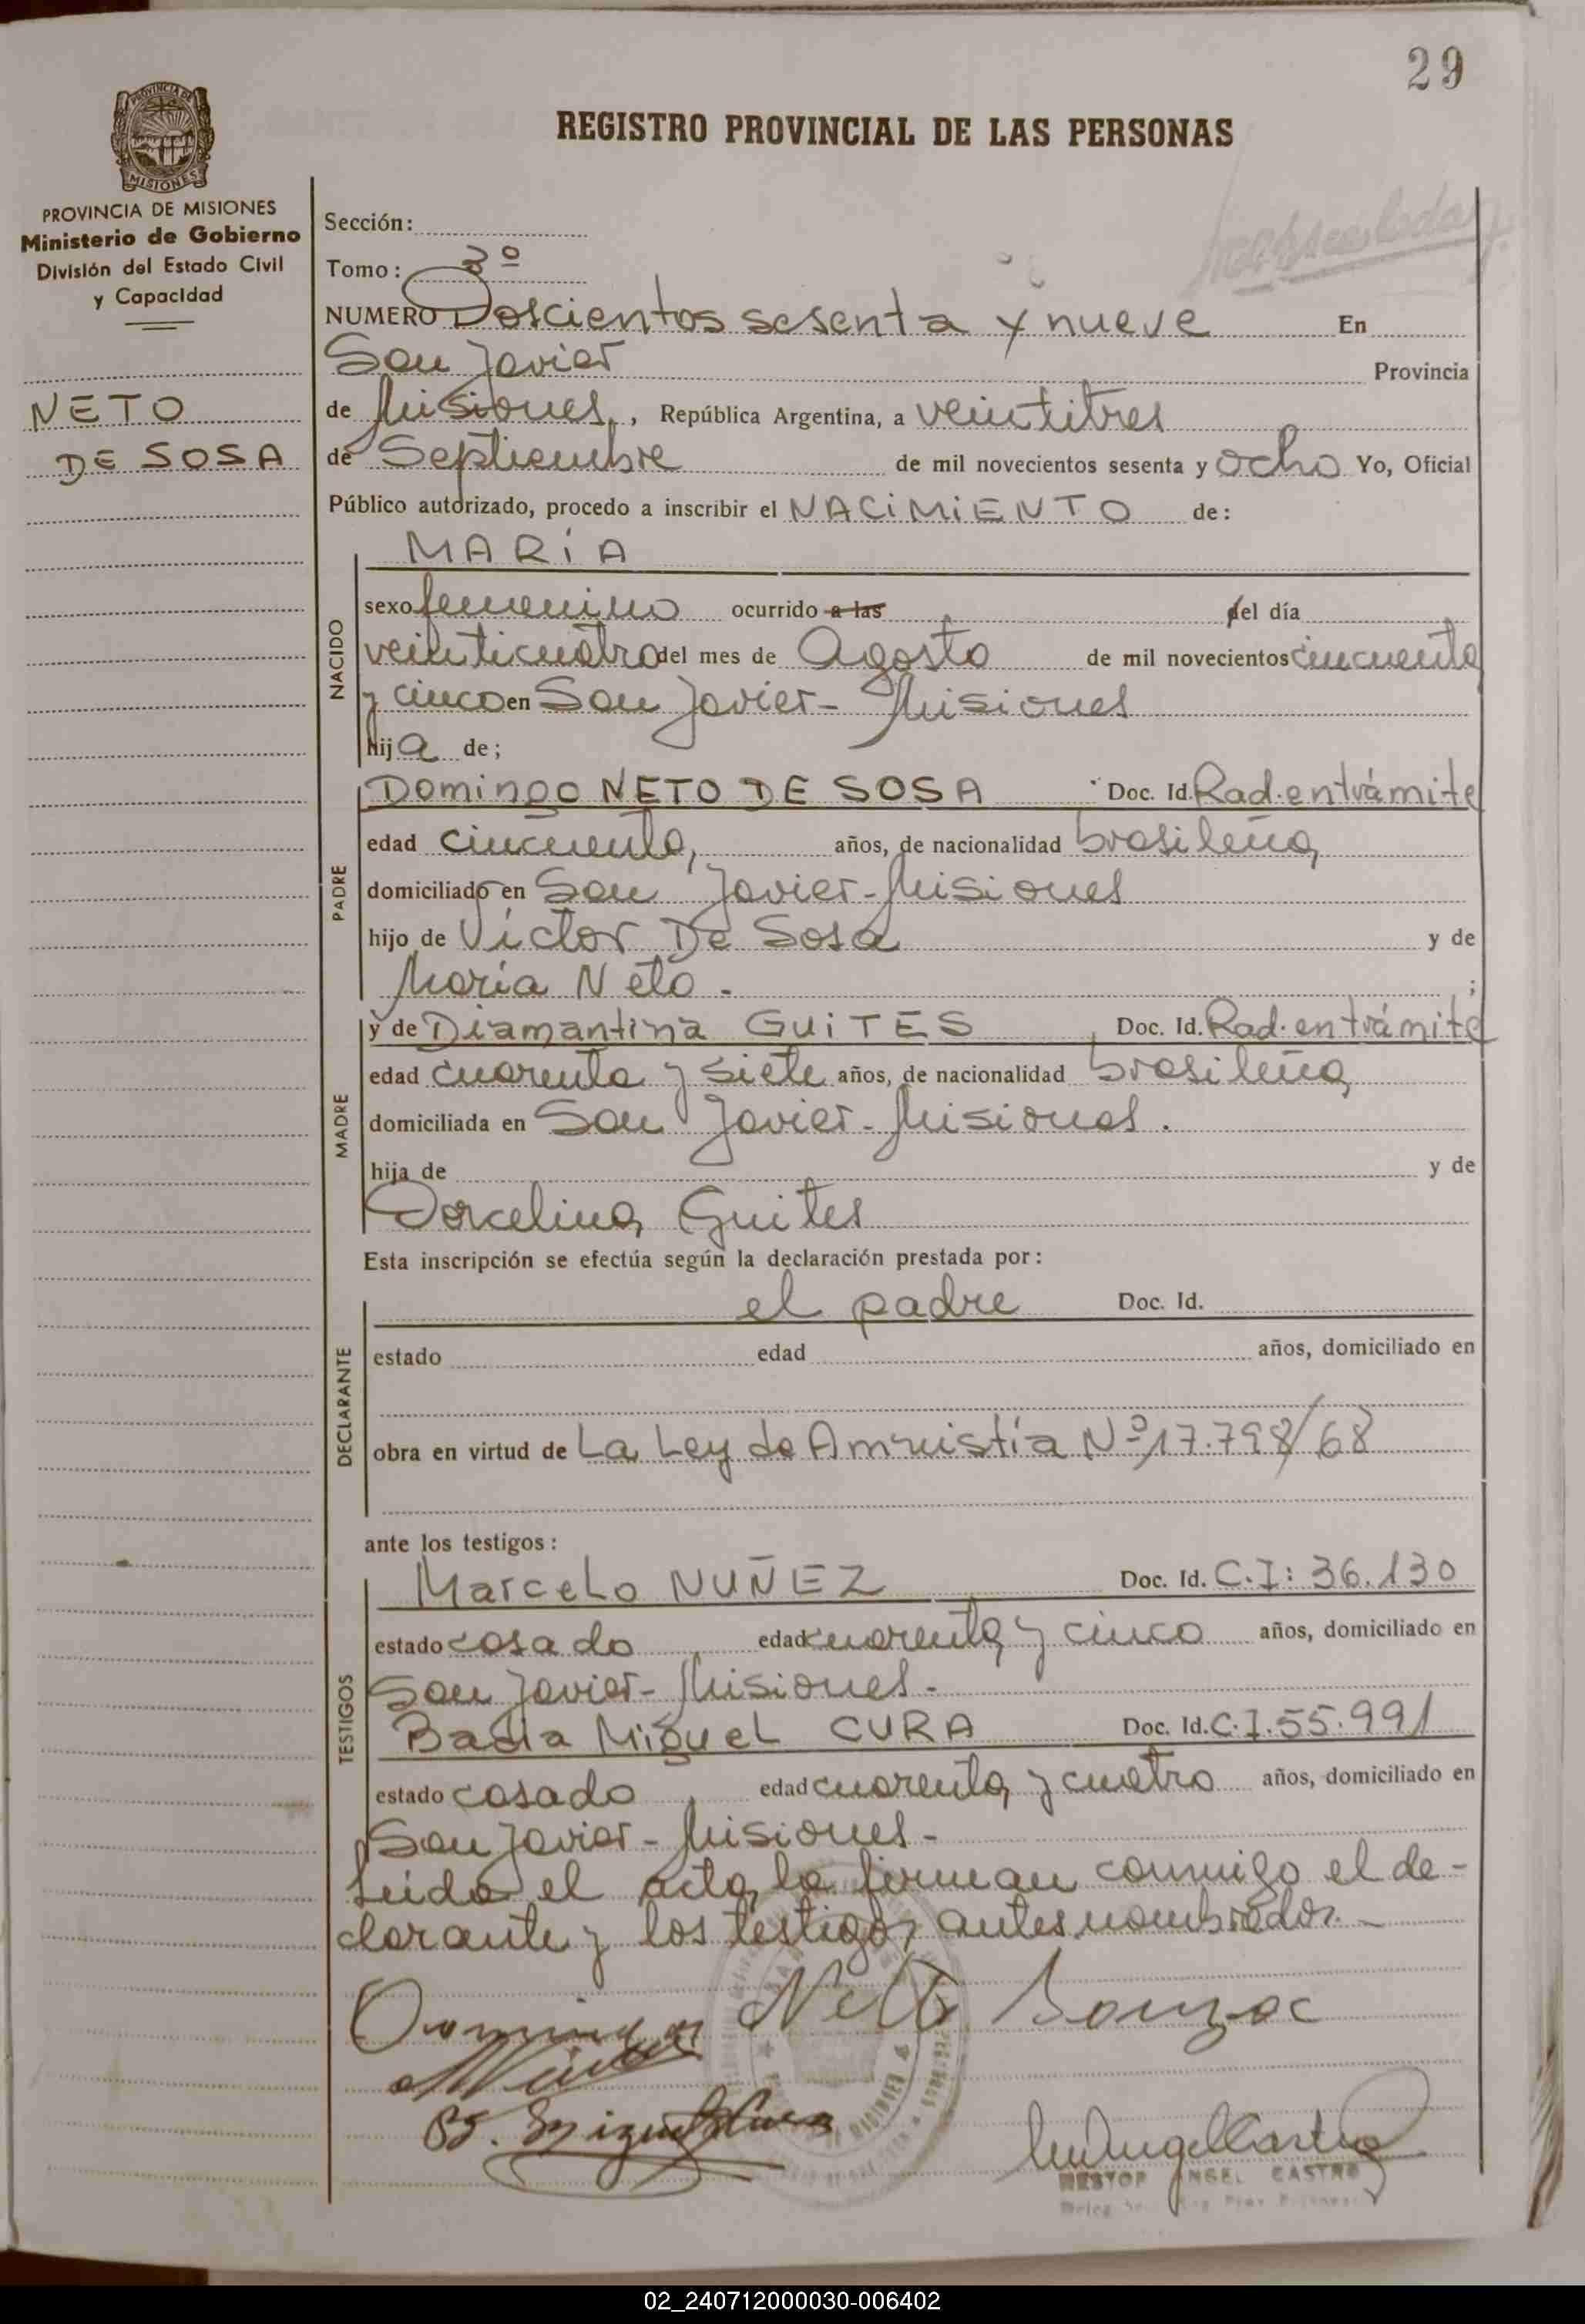 29
REGISTRO PROVINCIAL DE LAS PERSONAS
PROVINCIA DE MISIONES
PROVINCIA DE MISIONES
Ministerio de Gobierno
División del Estado Civil
y Capacidad
NETO
DE SOSA
Sección:
Tomo: 3º
NUMERO Doscientos sesenta y nueve En
San Javier Provincia
de Misiones, República Argentina, a veintitres
de Septiembre de mil novecientos sesenta y ocho Yo, Oficial
Público autorizado, procedo a inscribir el NACIMIENTO de:
MARÍA
NACIDO
sexo femenino ocurrido a las del día
veinticuatro del mes de Agosto de mil novecientos cincuenta
y cinco en San Javier - Misiones
hija de;
PADRE
Domingo NETO DE SOSA Doc. Id. Rad. en trámite
edad cincuenta, años, de nacionalidad brasileña
domiciliado en San Javier - Misiones
hijo de Víctor De Sosa y de
María Neto - ;
MADRE
y de Diamantina GUITES, Doc. Id. Rad. en trámite
edad cuarenta y siete años, de nacionalidad brasileña
domiciliada en San Javier - Misiones.
hija de y de
Dorcelina Guites
Esta inscripción se efectúa según la declaración prestada por:
DECLARANTE
el padre Doc. Id.
estado edad años, domiciliado en
obra en virtud de La Ley de Amnistía Nº 17.798/68
ante los testigos:
TESTIGOS
Marcelo NUÑEZ Doc. Id. C.I: 36.130
estado casado edad cuarenta y cinco años, domiciliado en
San Javier - Misiones -
Badia Miguel CURA Doc. Id. C.I. 55.991
estado casado, edad cuarenta y cuatro años, domiciliado en
San Javier - Misiones -
Leida el acta, la firman conmigo el de-
clarante y los testigos antes nombrados. -
Neto
NESTOR ANGEL CASTRO
02_240712000030-006402